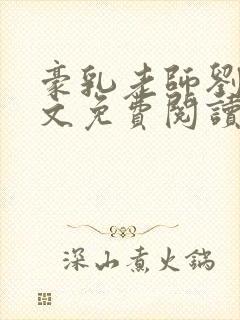 豪乳老師劉
文免費閱讀
深山煮火鍋